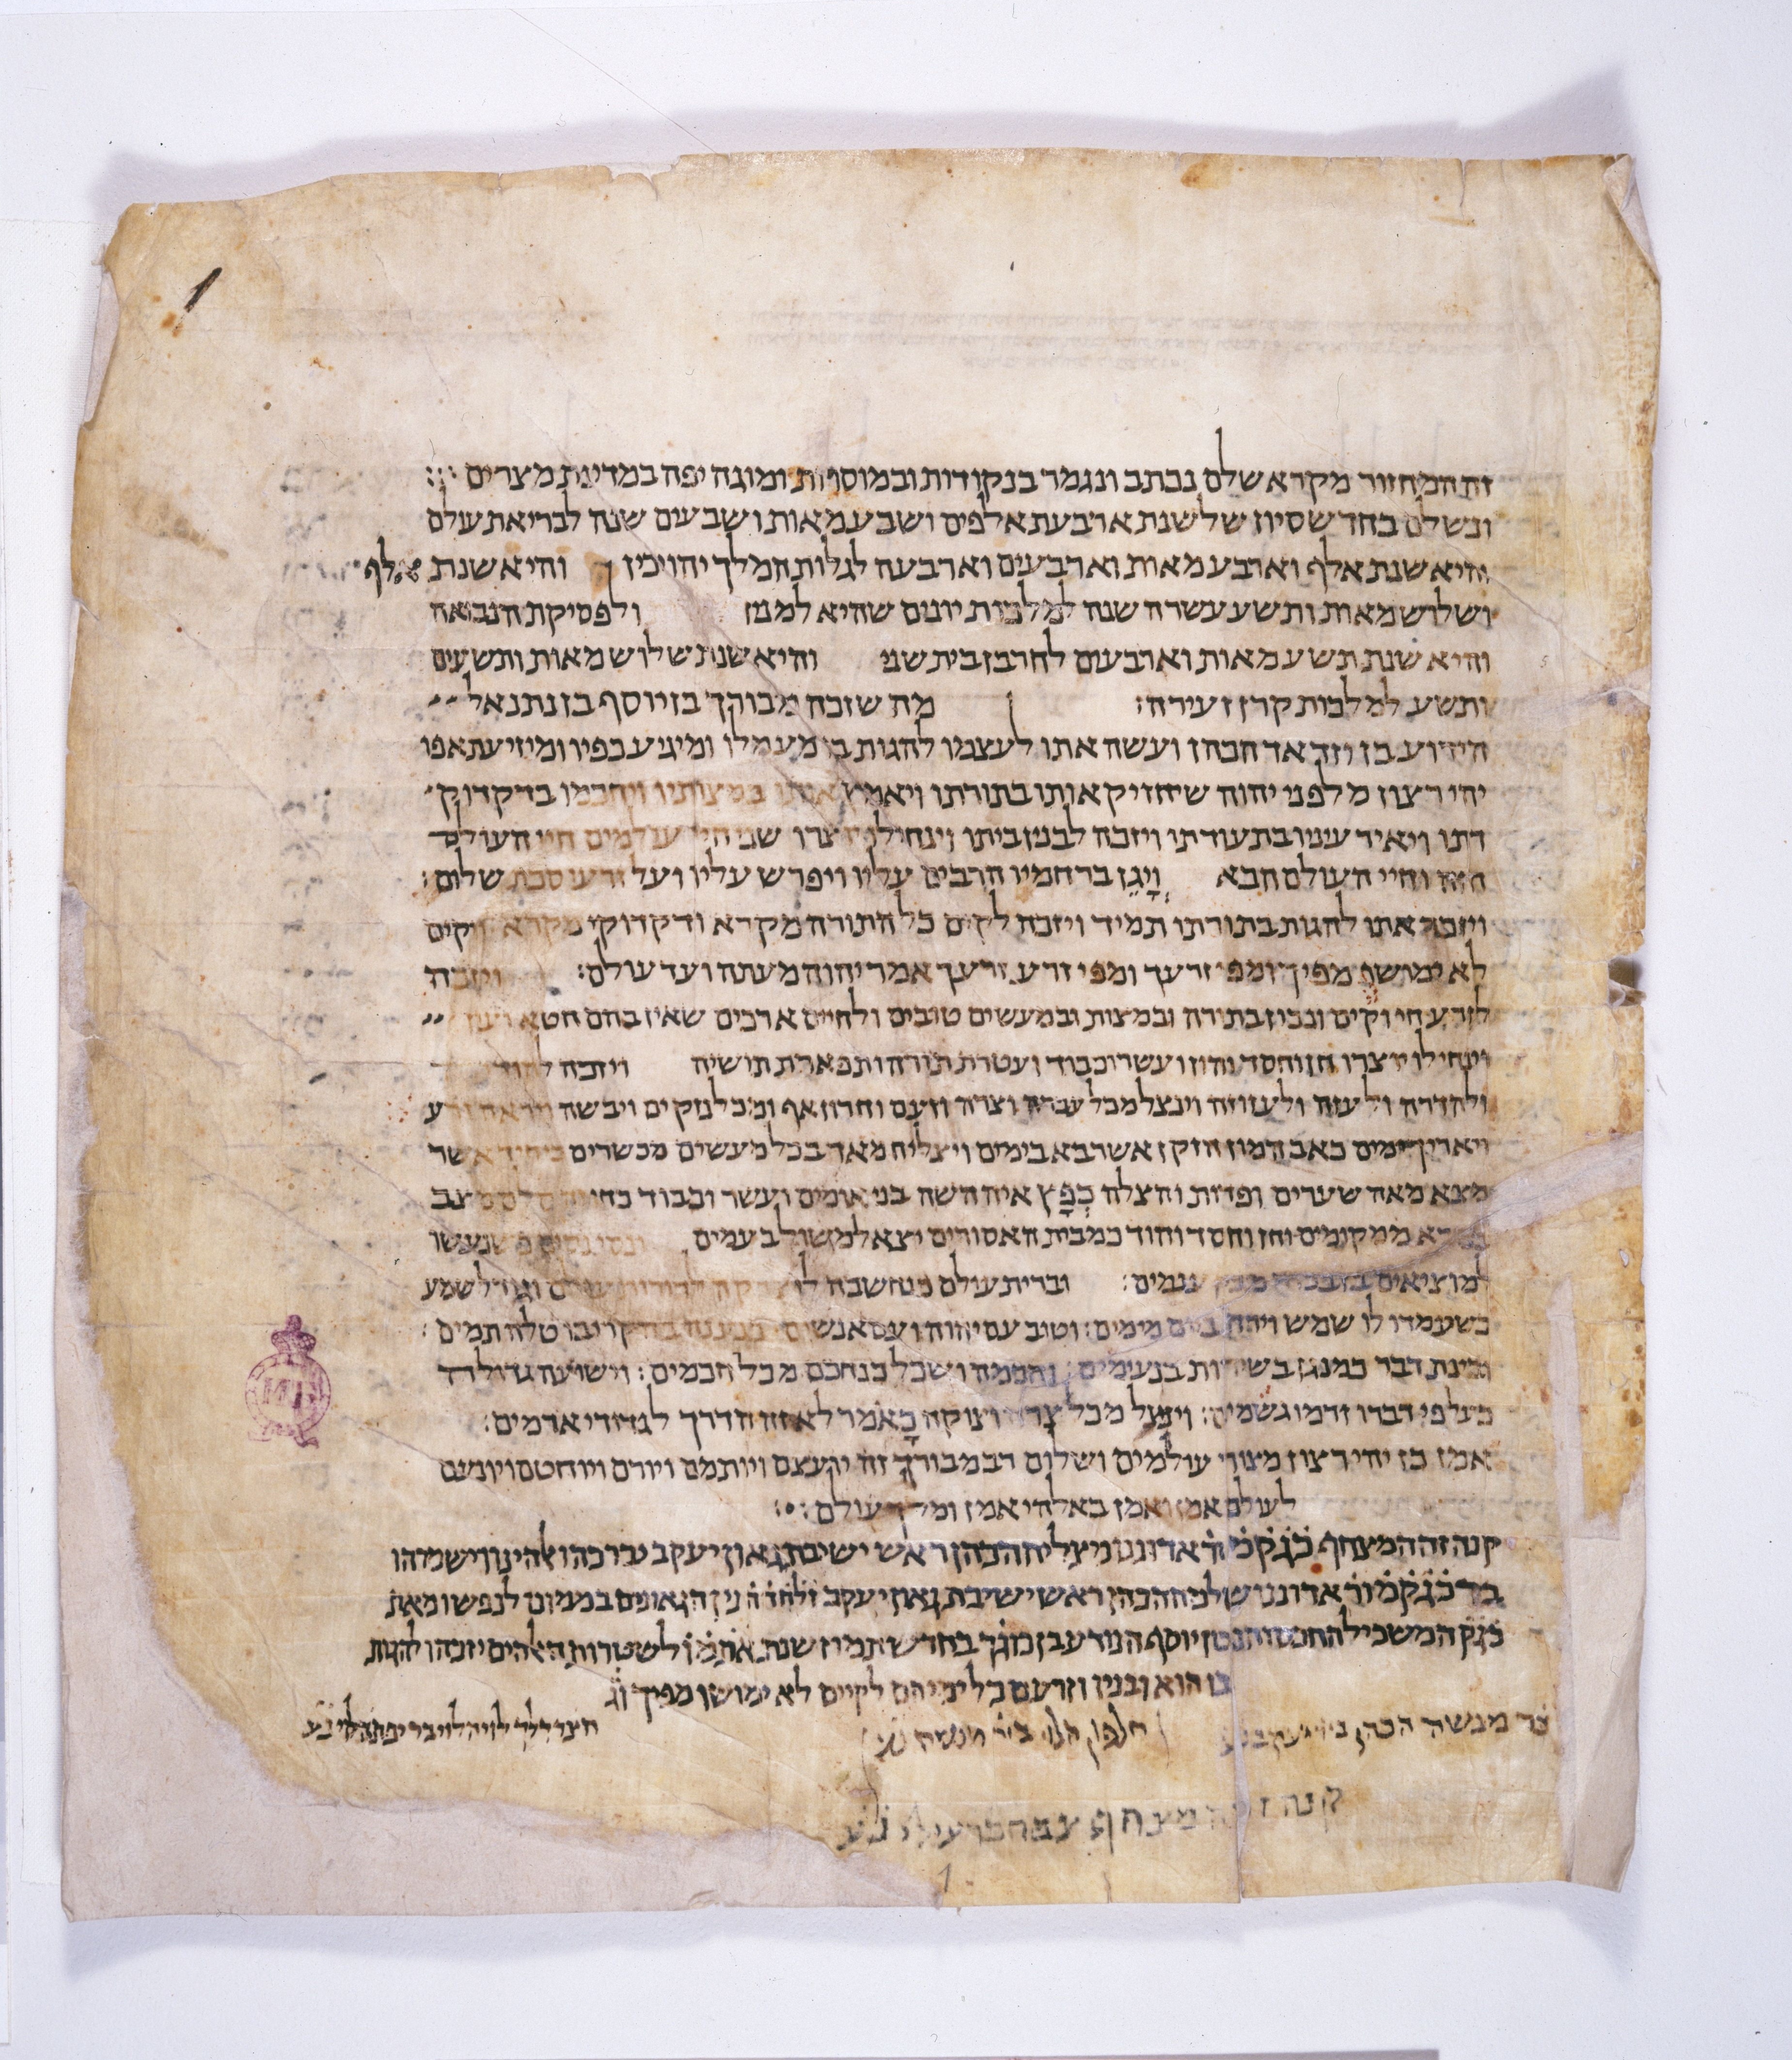 זה המחזור מקרא שלם נכתב ונגמר בנקודות ובמוסרות ומוגה יפה במדינת מצרים
ונשלם בחדש סיון של שנת ארבעת אלפים ושבע מאות ושבעים שנה לבריאת עולם
והיא שנת אלף וארבע מאות וארבעים וארבעה לגלות המלך יהויכין והיא שנת אלף
ושלוש מאות ותשע עשרה שנה למלכות יונים שהיא למנין ולפסיקת הנבואה
והיא שנת תשע מאות וארבעים לחרבן בית שני והיא שנת שלוש מאות ותשעים
ותשע למלכות קרן זעירה: מה שזכה מבורך בן יוסף בן נתנאל
הידוע בן וזדאד הכהן ועשה אתו לעצמו להגות בו מעמלו ומיגיע כפיו ומיזיעת אפו
יהי רצון מלפני יהוה שיחזיק אותו בתורתו ויאמץ אותו במצותיו ויחכמו בדקדוק
דתו ויאיר עיניו בתעודתו ויזכה לבנין ביתו וינחילו יוצרו שני חיי עולמים חיי העולם
הזה וחיי העולם הבא וְיָגֵן ברחמיו הרבים עליו ויפרש עליו ועל זרעו סכת שלום:
ויזכה אתו להגות בתורתו תמיד ויזכה לקים כל התורה מקרא ודקדוקי מקרא ויקים
לא ימושו מפיך ומפי זרעך ומפי זרע זרעך אמר יהוה מעתה ועד עולם: ויזכה
לזרע חי וקים ונכון בתורה ובמצות ובמעשים טובים ולחיים ארכים שאין בהם חטא ועון
וינחילו יוצרו חן וחסד והון ועשר וכבוד ועטרת תורה ותפארת תושיה ויזכה להוד
ולהדרה ולעזה ולעזוזה וינצל מכל עברה וצרה וזעם וחרון אף ומכל נזקים ויבשה ויראה זרע
ויאריך ימים כאב המון הזקן אשר בא בימים ויצליח מאד בכל מעשים מכשרים כיחיד אשר
מצא מאה שערים ופדות והצלח כְּפָץ איה השה בני אומים ועשר וכבוד כחי
ממקומים וחן וחסד והוד כמבית האסורים יצא למשול בעמים
למוציאים וברית עולם כנחשבה לו צדקה לדורות עולם וגודל שמע
כשעמדו לו שמש וירח מימים: וטוב עם יהוה ועם אנשים טלה תמים:
ובינת דבר כמנגן בשירות בנעימים: וחכמה ושכל כנחכם מכל חכמים: וישועה גדולה
כעל פי דברו זרמו גשמים: וינצל מכל צרה וצוקה כָּאֹמר לא זה הדרך לגדודי ארמים:
אמן כן יהי רצון מצורי עולמים ושלום רב מבורך זה יועצם ויותמם ויורם ויוחטם ויונעם
לעולם אמן ואמן באלהי אמן ומלך עולם:
קנה זה המצחף כׄגׄקׄ מׄ ורׄ אדוננו מצליח הכהן ראש ישיבת גאון יעקב יברכהו אלהינו וישמרהו
ברׄ כׄגׄקׄ מׄ ורׄ אדוננו שלמה הכהן ראש ישיבת גאון יעקב זלהה נין הגאונים בממונו לנפשו מאת
כׄגׄקׄ המשכיל החכם והנבון יוסף הנודע בן כוגך בחדש תמוז שנת אׄתׄמׄוׄ לשטרות האלהים יזכהו להגות
בו הוא ובניו וזרעם כל ימיהם לקיים לא ימושו מפיך וגׄ
מנשה הכהן ביר יעקב נע
חלפון הלוי ביר מנשה נע
חצר דלך לוי הלוי בר יפת הלוי נע
קנה זה המצחף